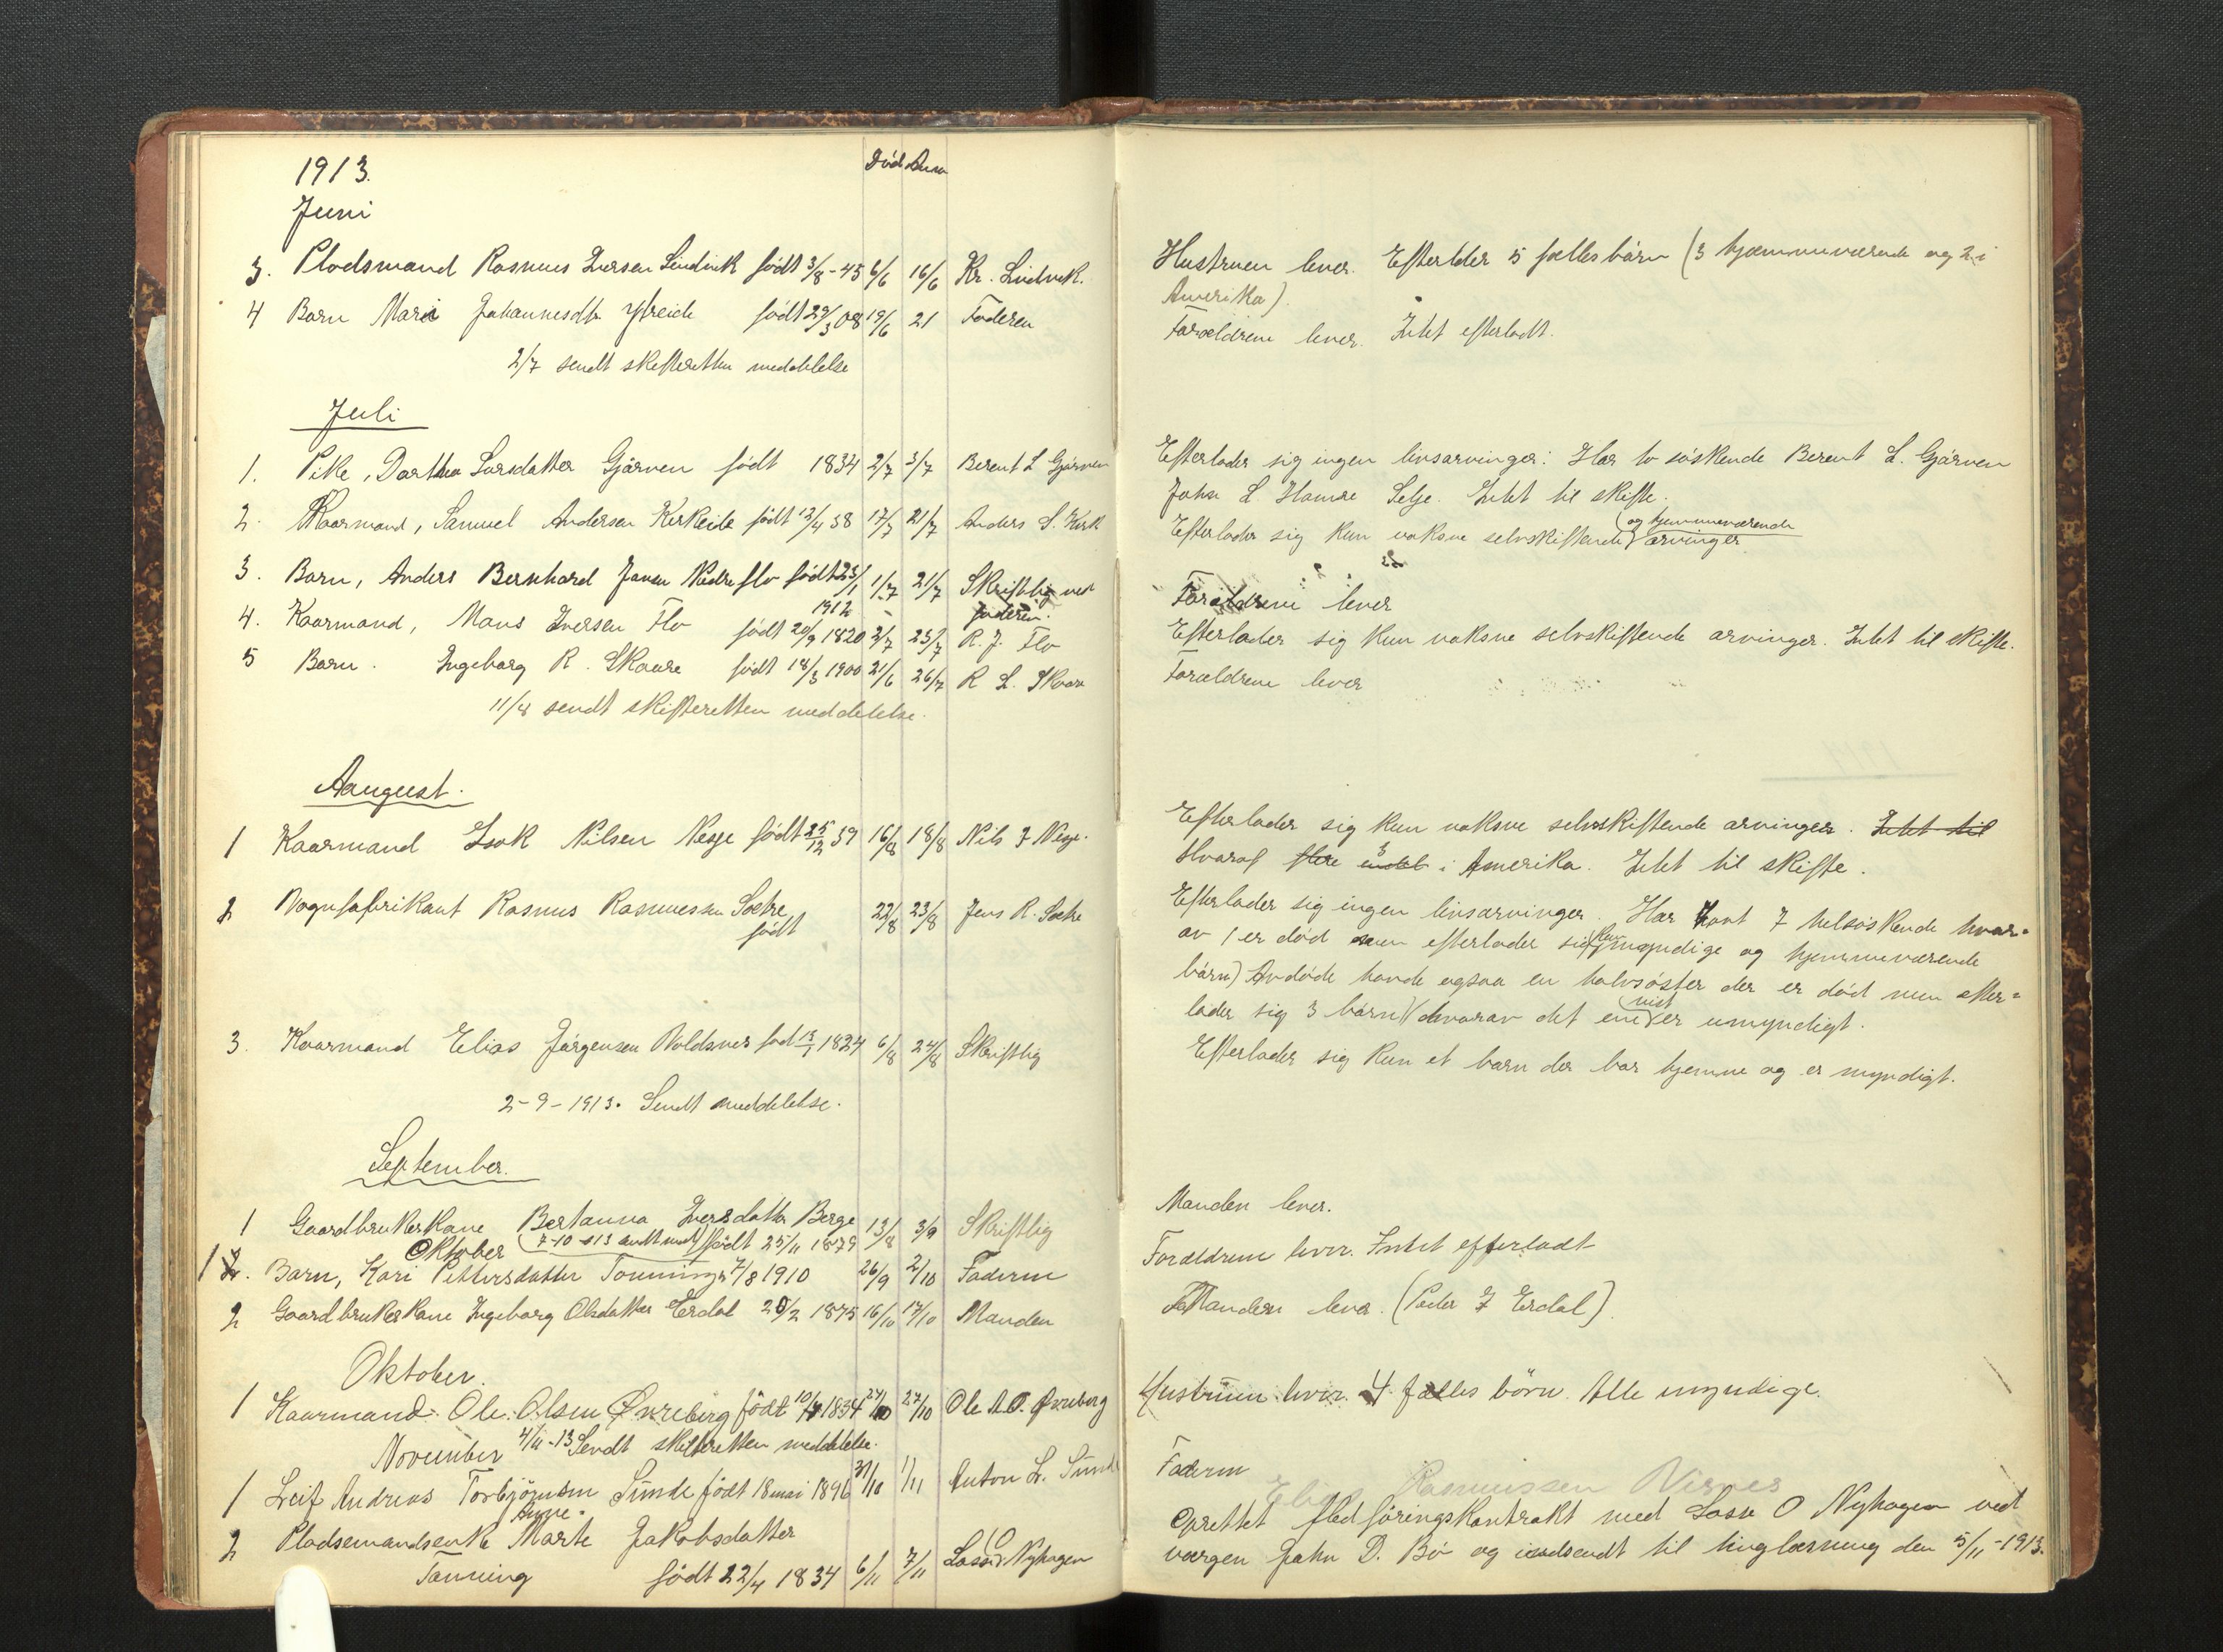 1913.
Død Anm
Juni
3. Pladsmand Rasmus Iversen Lindvik født 3/8-45 6/6 16/6 Kr. Lindvik.
4 Barn Mari Johannesdtr Ytreeide født 29/3 08 19/6 21 Faderen
2/7 sendt skifteretten meddelelse
Juli
1. Pike, Dorthea Larsdatter Gjørven født 1834 2/7 3/7 Berent L Gjørven
2. Kaarmand, Samuel Andersen Kirkeide født 12/4 38 17/7 21/7 Anders S. Kirk
3. Barn, Anders Bernhard Jansen Nedreflo født 23/1 1/7 21/7 Skriftlig ved
1912 faderen.
4. Kaarmand, Mons Iversen Flo født 20/9 1820 2/7 23/7 R. J. Flo
5 Barn. Ingeborg R. Skaare født 18/3 1900 21/6 26/7 R L. Skaare
11/8 sendt skifteretten meddelelse.
Aaugust.
1 Kaarmand Isak Nilsen Nesje født 25/12 39 16/8 18/8 Nils I Nesje.
2 Vognfabrikant Rasmus Rasmussen Sætre 22/8 23/8 Jens R. Sætre
født
3. Kaarmand Elias Jørgensen Voldsnes fød 13/1 1824 6/8 24/8 Skriftlig
2-9-1913. Sendt meddelelse.
September.
1 Gaardbrukerkone Bertanna Iversdatter Berge 13/8 3/9 Skriftlig
7-10-13 sendt født 25/11 1879
Oktober
1 2. Barn, Kari Pettersdatter Tonning 7/8 1910 26/9 2/10 Faderen
2 Gaardbrukerkone Ingeborg Olsdatter Erdal 20/2 1875 16/10 17/10 Manden
Oktober.
1 Kaarmand. Ole Olsen Øvreberg født 10/4 1834 24/10 27/10 Ole A O. Øvreberg
November 4/11-13 Sendt skifteretten meddelelse.
1 Leif Andreas Torbjørnsen Sunde født 18 mai 1896 31/10 1/11 Anton L. Sunde
Anne
2 Pladsemandsenke Marte Jakobsdatter
Tonning født 22/4 1834 6/11 7/11 Lasse O Nyhagen
Hustruen lever. Efterlder 5 fælles børn (3 hjemmeværende og 2 i
Amerika).
Forældrene lever. Intet efterladt.
Efterlader sig ingen livsarvinger: Har to søskende Berent L. Gjørven
John L. Hamre Selje. Intet til skifte.
og hjemmeværende
Efterlader sig kun voksne selvskiftende arvinger
Forældrene lever
Efterlader sig kun voksne selvskiftende arvinger. Intet til skifte.
Forældrene lever
Efterlader sig kun voksne selvskiftende arvinger. Intet til
Hvoraf flere 3 i Amerika. Intet til skifte.
Efterlader sig ingen livsarvinger. Har havt 7 helsøskende hvor-
av 1 er død men efterlader sig kun myndige og hjemmeværende
børn) Avdøde havde ogsaa en halvsøster der er død men efter-
lader sig 3 børn (hvorav det ene vist er umyndigt.
Efterlader sig kun et barn der bor hjemme og er myndigt.
Manden lever.
Forældrene lever. Intet efterladt
Manden lever. (Peder I Erdal).
Hustruen lever. 4 fælles børn. Alle myndige.
Faderen
Elias Rasmussen Nisnes
Oprettet fledføringskontrakt med Lasse O Nyhagen ved
værgen John D. Bø og indsendt til tinglæsning den 5/11-1913.